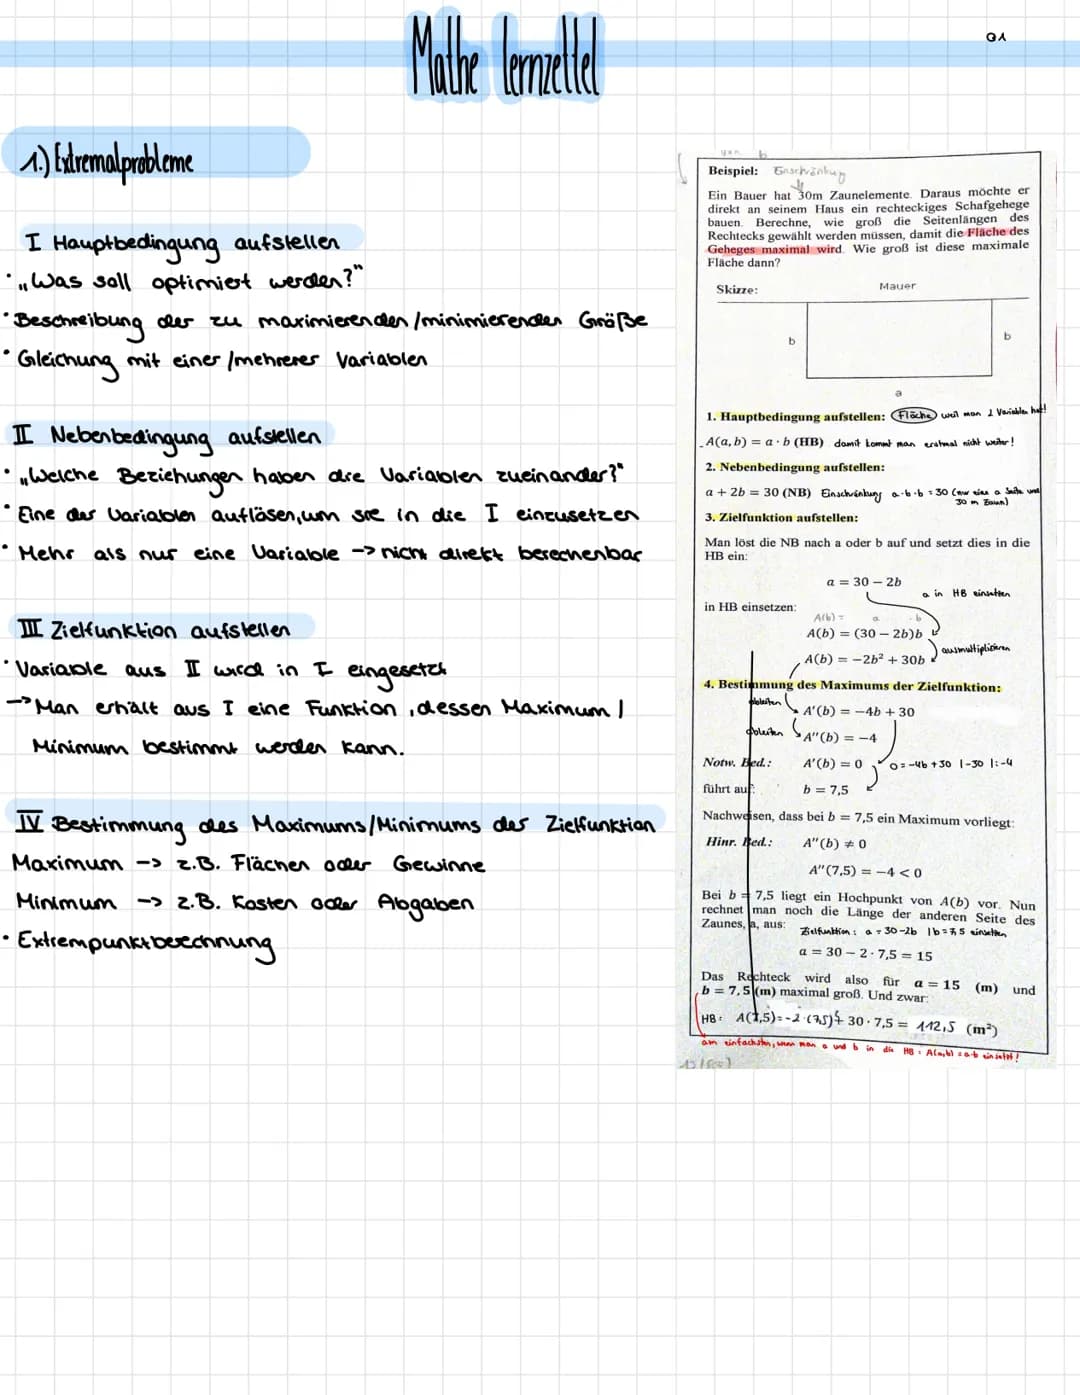 Mathe lernzettel
Q1
1.) Extremalprobleme
I Hauptbedingung aufstellen
• „Was soll optimiert werden?"
• Beschreibung der zu maximierenden/minimierenden Größe
• Gleichung mit einer/mehrerer Variablen
II Nebenbedingung aufstellen
• „Welche Beziehungen haben die Variablen zueinander?"
• Eine der Variablen auflösen, um sie in die I einzusetzen
• Mehr als nur eine Variable -> nicht direkt berechenbar
III Zielfunktion aufstellen
• Variable aus II wird in I eingesetzt
-> Man erhält aus I eine Funktion, dessen Maximum/
Minimum bestimmt werden kann.
IV Bestimmung des Maximums/Minimums der Zielfunktion
Maximum -> z.B. Flächen oder Gewinne
Minimum -> z.B. Kosten oder Abgaben
• Extrempunktberechnung
Beispiel: Einschränkung
Ein Bauer hat 30m Zaunelemente. Daraus möchte er
direkt an seinem Haus ein rechteckiges Schafgehege
bauen. Berechne, wie groß die Seitenlängen des
Rechtecks gewählt werden müssen, damit die Fläche des
Geheges maximal wird. Wie groß ist diese maximale
Fläche dann?
Skizze:
Mauer
b
b
a
1. Hauptbedingung aufstellen: Fläche weil man 2 Variablen hat!
A(a, b) = a · b (HB) damit kommt man erstmal nicht weiter!
2. Nebenbedingung aufstellen:
a + 2b = 30 (NB) Einschränkung a·b·b = 30 (nur eine a Seite und
30 m Zaun)
3. Zielfunktion aufstellen:
Man löst die NB nach a oder b auf und setzt dies in die
HB ein:
a = 30 − 2b
a in HB einsetzen
in HB einsetzen:
A(b) = a · b
A(b) = (30 − 2b)b
ausmultiplizieren
A(b) = −2b² + 30b
4. Bestimmung des Maximums der Zielfunktion:
ableiten
A'(b) = −4b + 30
ableiten
A''(b) = −4
Notw. Bed.: A'(b) = 0 0 = -4b + 30 |-30 |:-4
führt auf: b = 7,5
Nachweisen, dass bei b = 7,5 ein Maximum vorliegt:
Hinr. Bed.: A''(b) ≠ 0
A''(7,5) = −4 < 0
Bei b = 7,5 liegt ein Hochpunkt von A(b) vor. Nun
rechnet man noch die Länge der anderen Seite des
Zaunes, a, aus: Zielfunktion: a = 30-2b | b = 7,5 einsetzen
a = 30 − 2 · 7,5 = 15
Das Rechteck wird also für a = 15 (m) und
b = 7,5 (m) maximal groß. Und zwar:
HB: A(7,5) = -2·(7,5)² + 30 · 7,5 = 112,5 (m²)
am einfachsten, wenn man a und b in die HB: A(a,b) = a·b einsetzt!